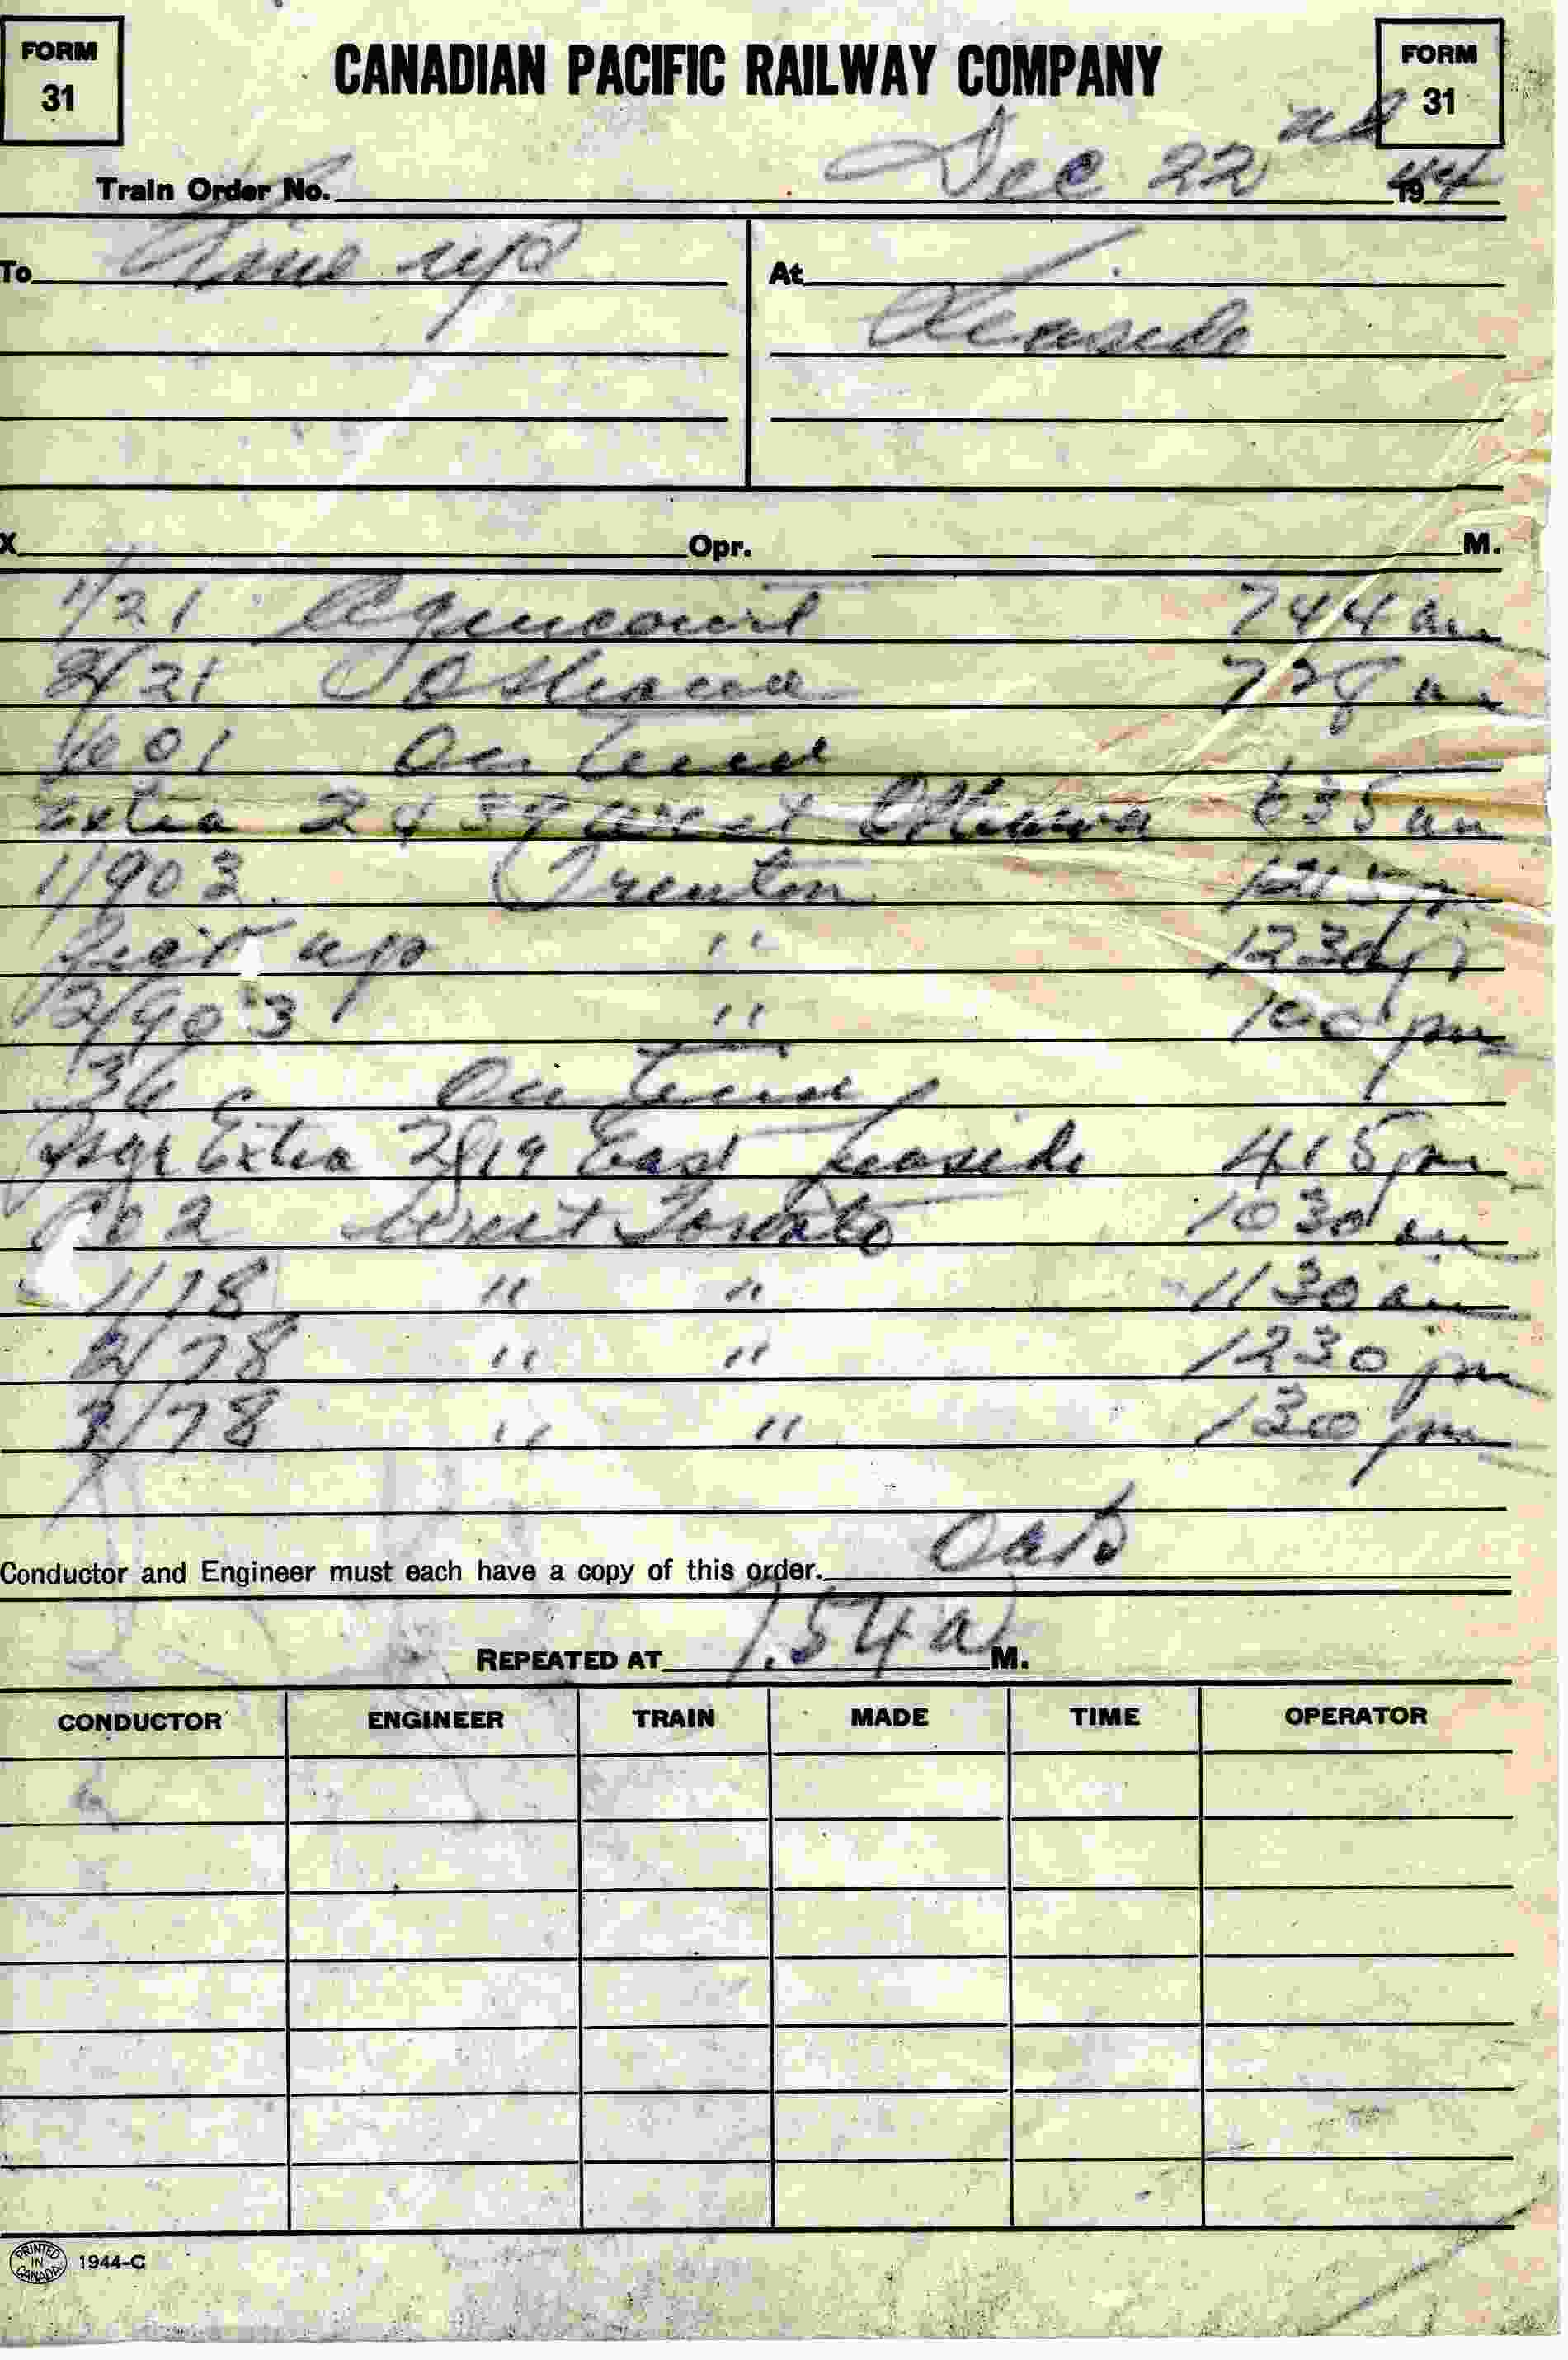 FORM 31 CANADIAN PACIFIC RAILWAY COMPANY FORM 31
Dec 22nd
Train Order No. 1944
To Line up At
Leaside
X Opr. M.
1/21 Agincourt 744 am
2/21 Oshawa 728 am
601 On time
Extra 2459 west Oshawa 635 am
1/903 Trenton 1215 pm
up " 1230 pm
2/903 " 100 pm
36 On time
Psgr Extra 2819 East Leaside 415 pm
902 West Toronto 1030 am
1/78 " " 1130 am
2/78 " " 1230 pm
3/78 " " 130 pm
Conductor and Engineer must each have a copy of this order.
REPEATED AT 7.54 a M.
CONDUCTOR ENGINEER TRAIN MADE TIME OPERATOR
PRINTED IN CANADA 1944-C